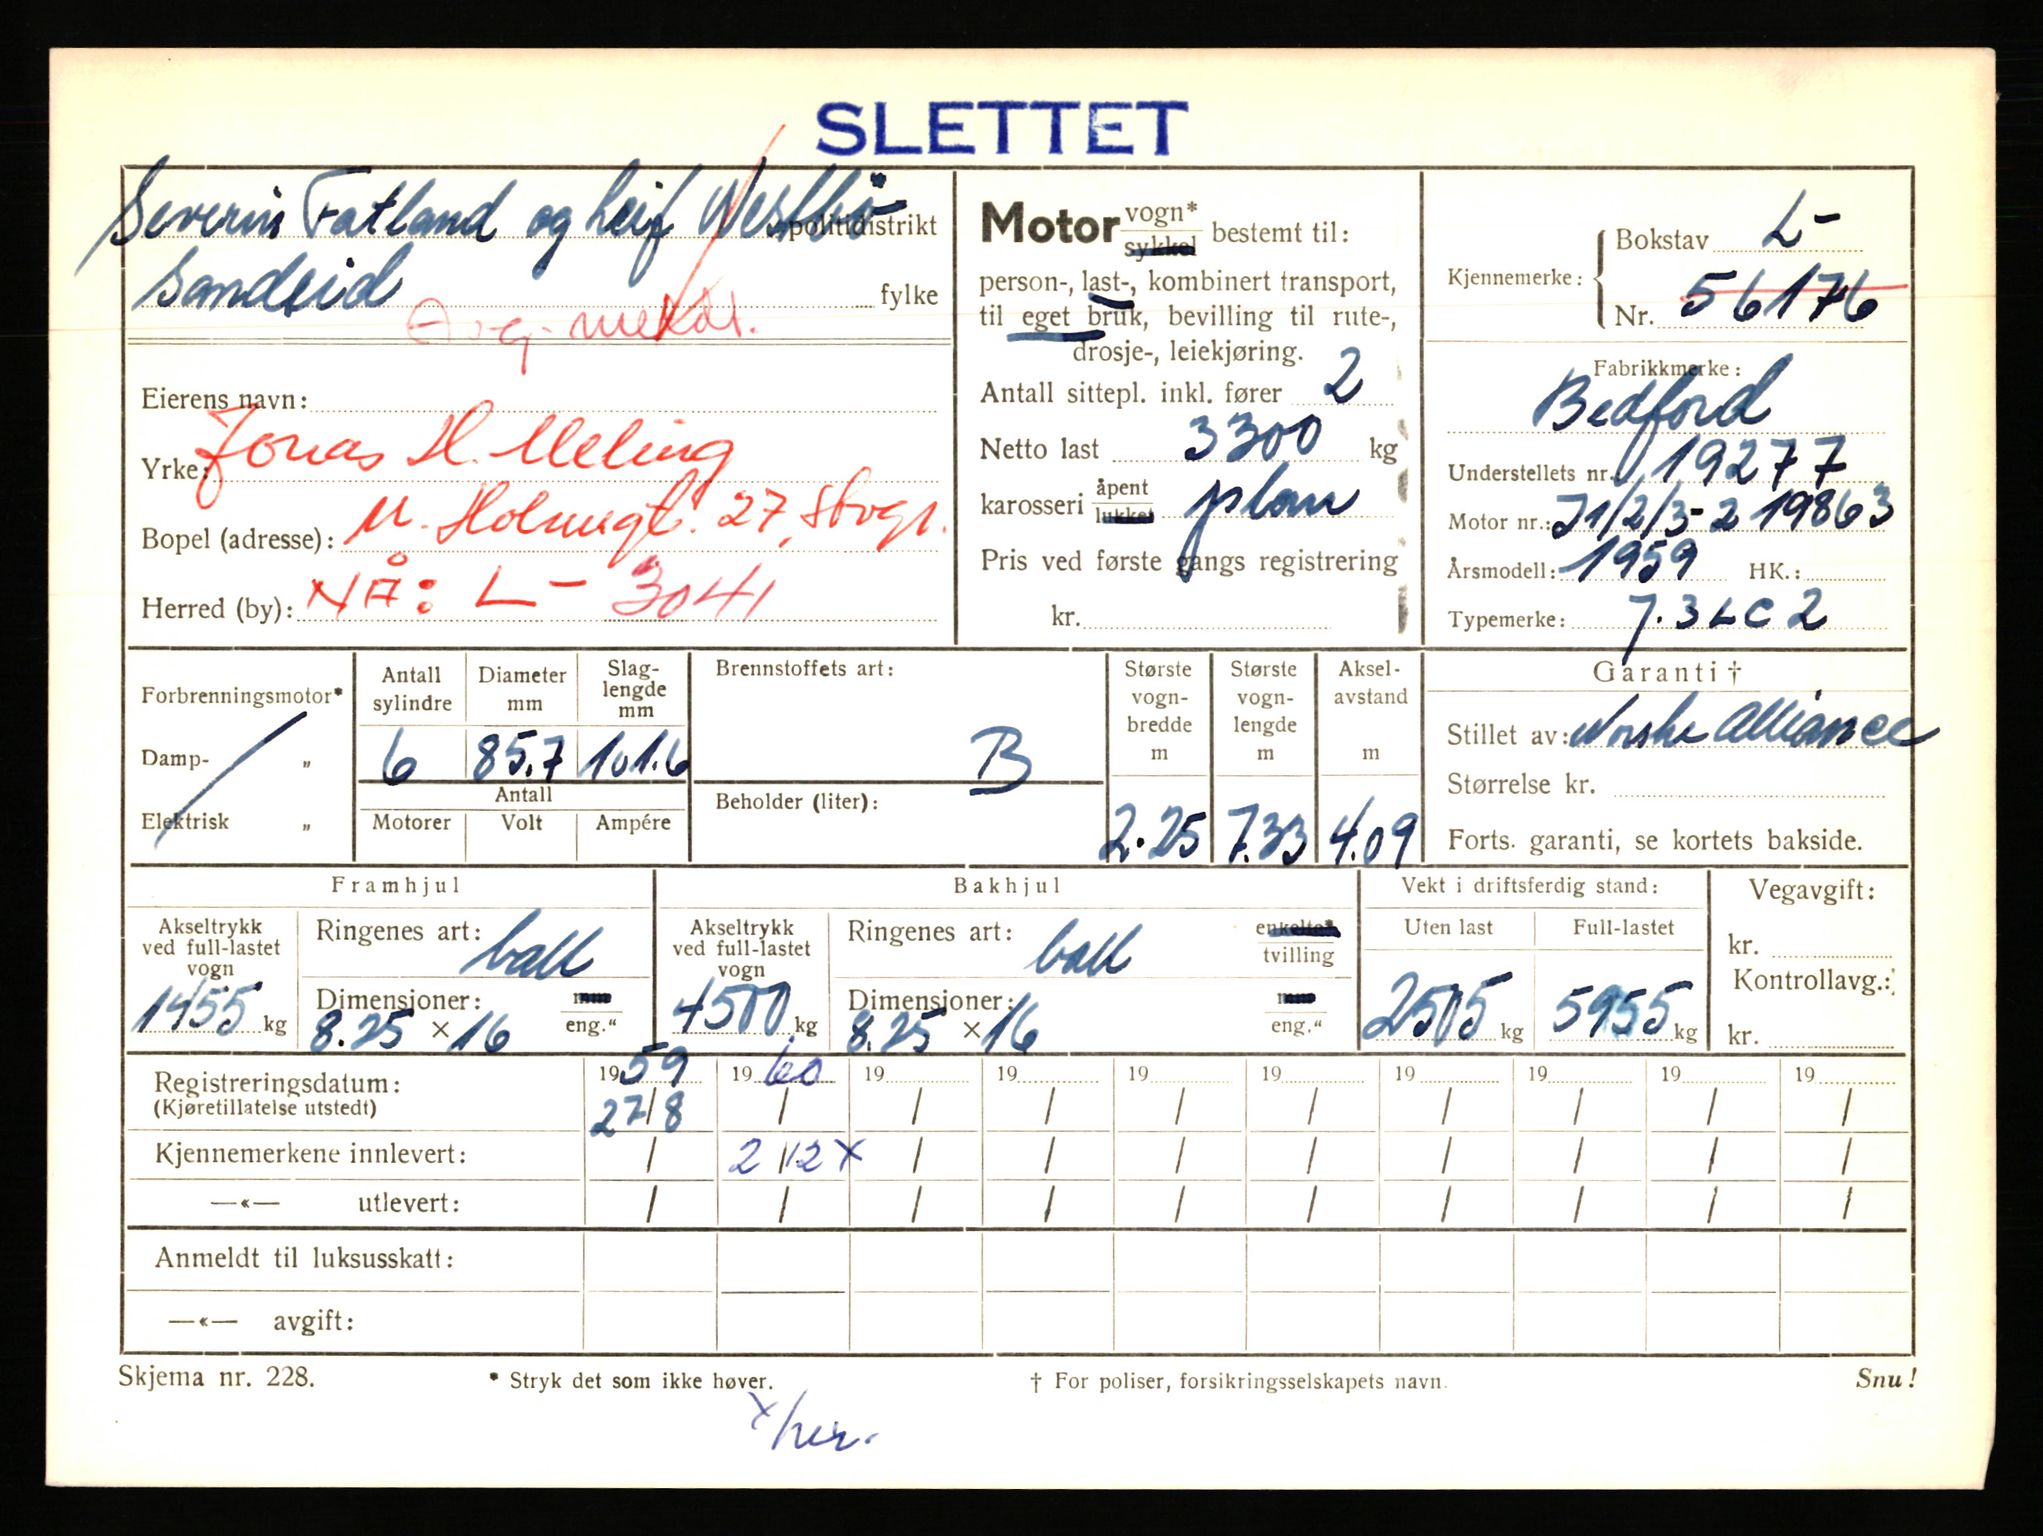 SLETTET
Severin Fatland og Leif Westbö politidistrikt
Sandeid fylke
Avg. meldt.
Eierens navn:
Jonas H. Meling
Yrke:
Bopel (adresse): M. Holmsgt. 27, Stvgr.
Herred (by): NÅ: L- 3041
Motor vogn* sykkel bestemt til:
person-, last-, kombinert transport,
til eget bruk, bevilling til rute-,
drosje-, leiekjøring.
Antall sittepl. inkl. fører 2
Netto last 3300 kg
karosseri åpent lukket plan
Pris ved første gangs registrering
kr.
Kjennemerke: Bokstav L-
Nr. 56176
Fabrikkmerke:
Bedford
Understellets nr. 19277
Motor nr.: J1/2/3-2 19863
Årsmodell: 1959 HK.:
Typemerke: J.3LC2
Forbrenningsmotor*
Damp- „
Elektrisk „
Antall sylindre
6
Diameter mm
85.7
Slag-lengde mm
101.6
Antall
Motorer Volt Ampére
Brennstoffets art:
B
Beholder (liter):
Største vogn-bredde m
2.25
Største vogn-lengde m
7.33
Aksel-avstand m
4.09
Garanti †
Stillet av: Norske Alliance
Størrelse kr.
Forts. garanti, se kortets bakside.
Framhjul
Akseltrykk ved full-lastet vogn
1455 kg
Ringenes art: ball
Dimensjoner: mm
8.25 × 16 eng.“
Bakhjul
Akseltrykk ved full-lastet vogn
4500 kg
Ringenes art: ball enkelte* tvilling
Dimensjoner: mm
8.25 × 16 eng.“
Vekt i driftsferdig stand:
Uten last Full-lastet
2505 kg 5955 kg
Vegavgift:
kr.
Kontrollavg.:
kr.
Registreringsdatum: 1959 1960 19 19 19 19 19 19 19 19
(Kjøretillatelse utstedt) 27/8 / / / / / / / / /
Kjennemerkene innlevert: / 2/12 x / / / / / / / /
—«— utlevert: / / / / / / / / / /
Anmeldt til luksusskatt:
—«— avgift:
Skjema nr. 228. * Stryk det som ikke høver. † For poliser, forsikringsselskapets navn. Snu!
x her.